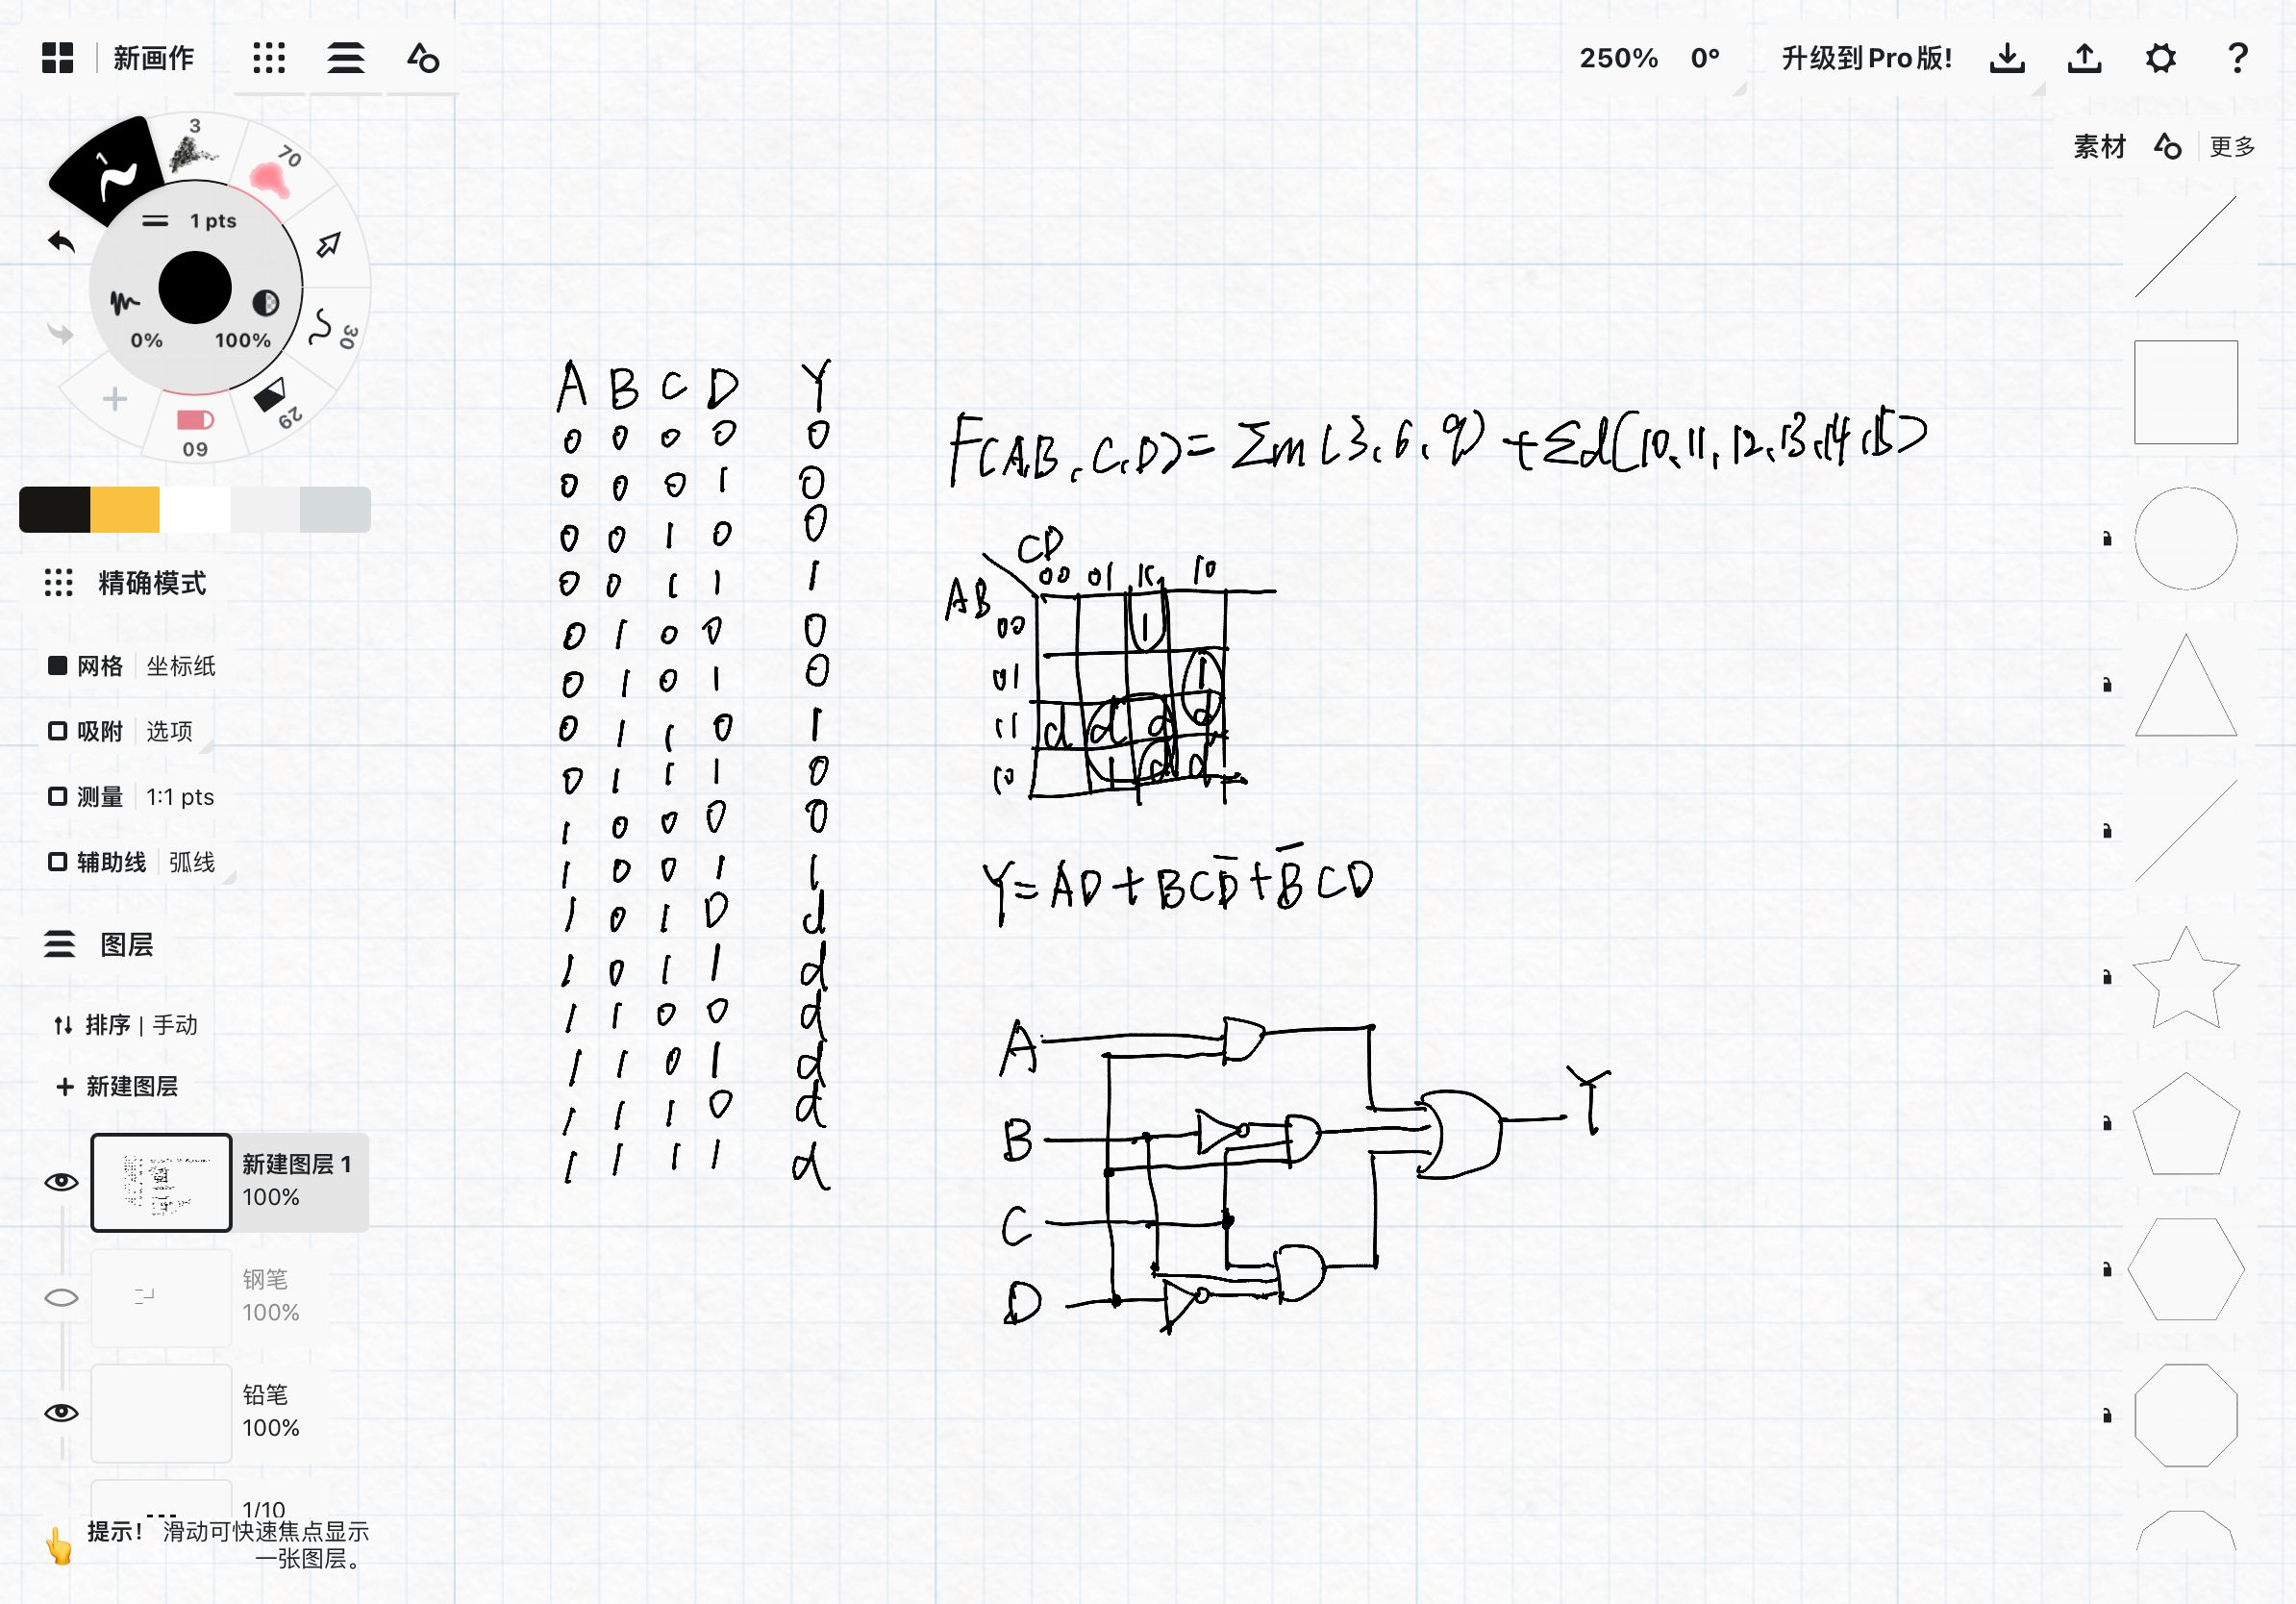 新画作
250% 0° 升级到 Pro 版! ?
素材 更多
3
70
1
1 pts
0% 100%
30
29
60
精确模式
网格 坐标纸
吸附 选项
测量 1:1 pts
辅助线 弧线
图层
排序 | 手动
+ 新建图层
新建图层 1
100%
钢笔
100%
铅笔
100%
1/10
提示! 滑动可快速焦点显示
一张图层。
A B C D Y
0 0 0 0 0
0 0 0 1 0
0 0 1 0 0
0 0 1 1 1
0 1 0 0 0
0 1 0 1 0
0 1 1 0 1
0 1 1 1 0
1 0 0 0 0
1 0 0 1 1
1 0 1 0 d
1 0 1 1 d
1 1 0 0 d
1 1 0 1 d
1 1 1 0 d
1 1 1 1 d
F(A,B,C,D)= Σm(3,6,9) + Σd(10,11,12,13,14,15)
CD
00 01 11 10
AB
00 1
01 1
11 d d d d
10 1 d d
Y= AD + BCD̅ + B̅CD
A
B
C
D
Y